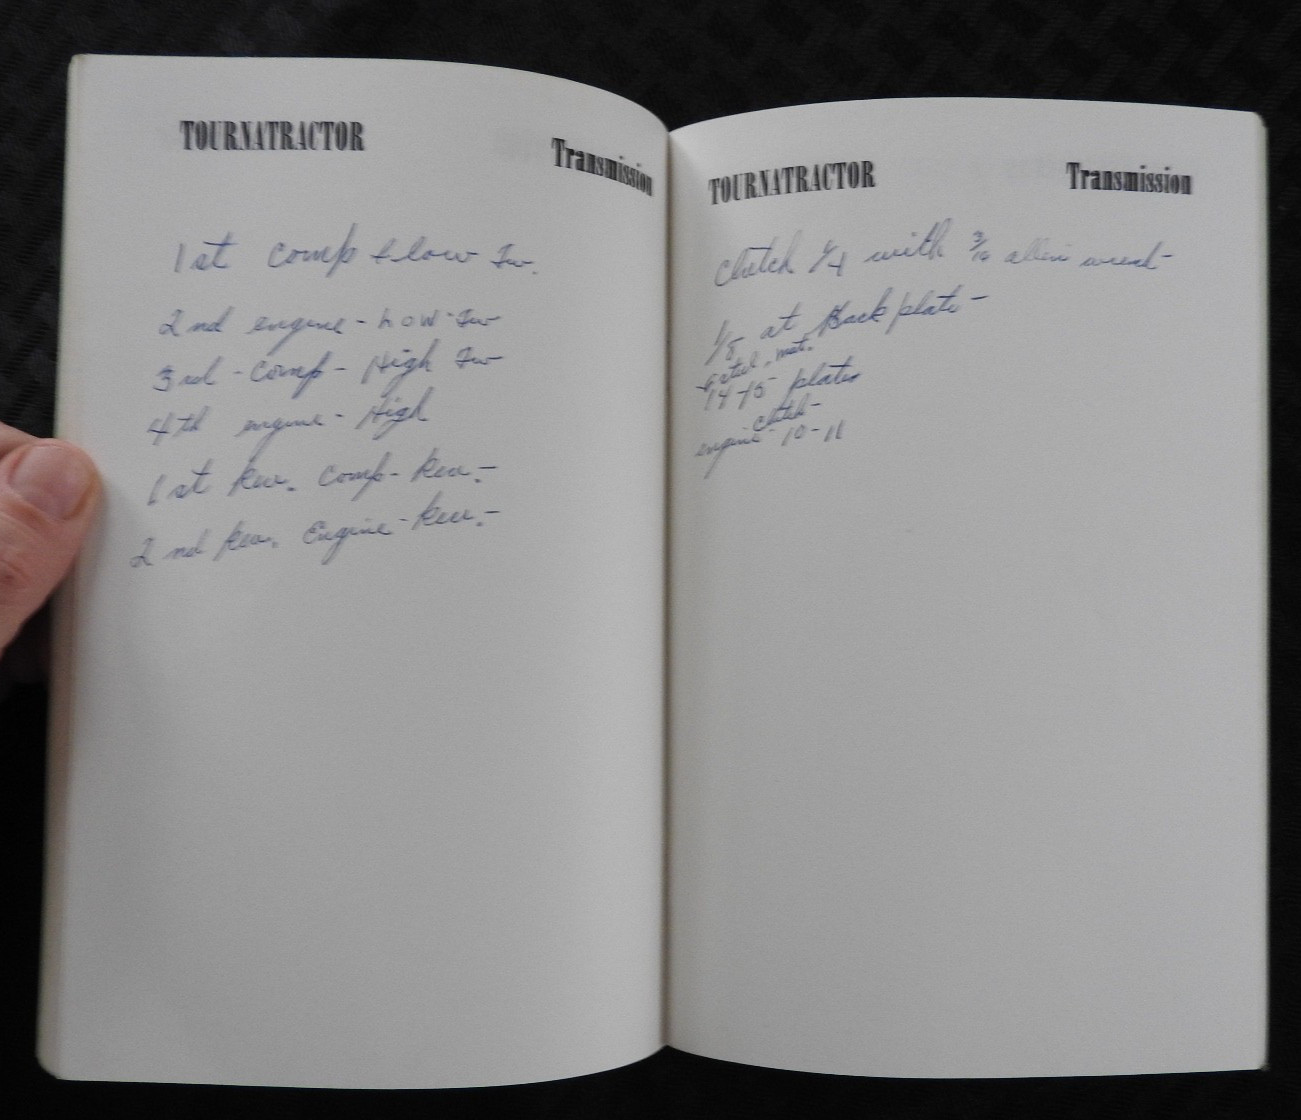 TOURNATRACTOR Transmission
1st comp & low Fw.
2nd engine - Low - Fw
3rd - comp - High Fw
4th engine - High
1st Rev. Comp - Rev. -
2nd Rev. Engine - Rev. -
TOURNATRACTOR Transmission
Clutch 1/4 with 3/16 allen
1/8 at Back plate -
14-15 plates
clutch -
engine - 10-11